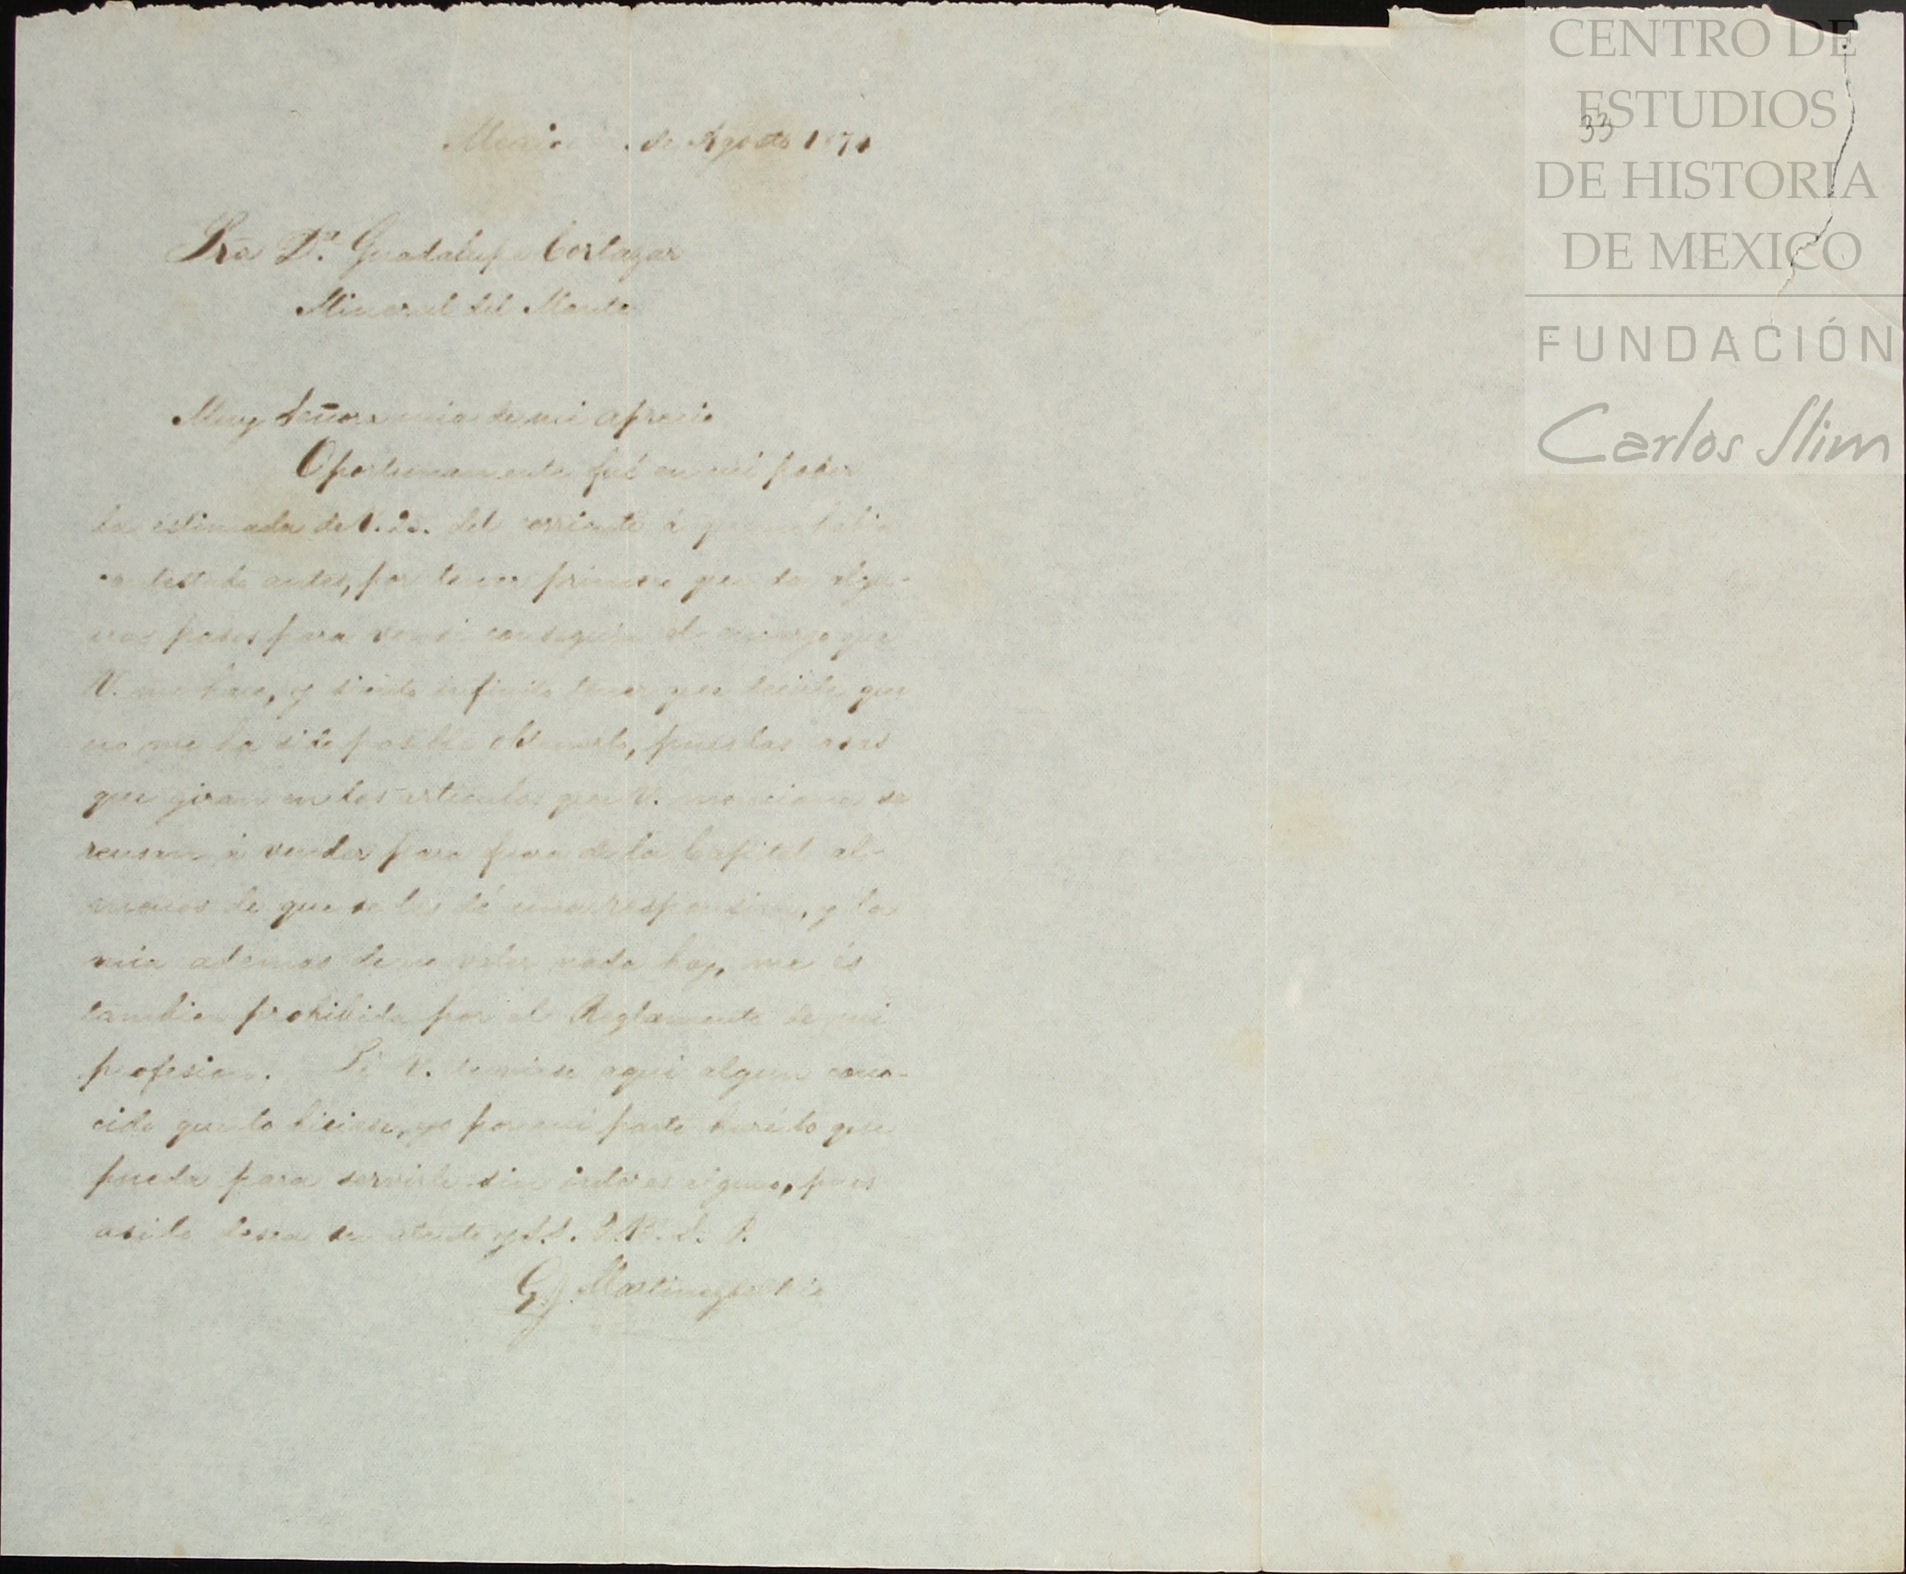 Mexico de Agosto 1871
33
Sra Dª. Guadalupe Cortazar
Mineral del Monte
Muy Señora mia de mi aprecio
Oportunamente fué en mi poder
la estimada de V. del corriente á
antes, por tener primero que dar algu-
nos pasos para ver si conseguia el encargo que
V. me hace, y siento infinito tener que decirle que
no me ha sido posible obtenerlo, pues las casas
que giran en los articulos que V. menciona se
reusan á vender para fuera de la Capital al-
menos de que se les dé una responsiva, y la
mia ademas de no valer nada hoy, me és
tambien prohibida por el Reglamento de mi
profesion. Si V. tuviese aqui algun cono-
cido que lo hiciese, yo por mi parte haré lo que
pueda para servirle sin interes alguno, pues
asi lo desea su atento y S.S. Q.B.S.P.
G. J.
CENTRO DE
ESTUDIOS
DE HISTORIA
DE MEXICO
FUNDACIÓN
Carlos Slim